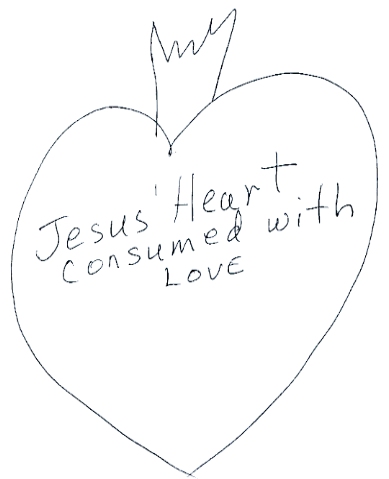 Jesus' Heart
consumed with
LOVE